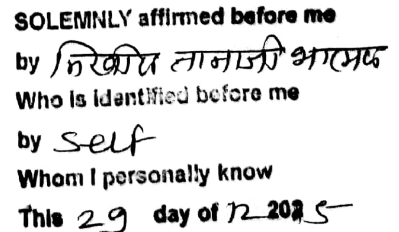 SOLEMNLY affirmed before me
by तानाजी
Who is identified before me
by self
Whom I personally know
This 29 day of 12 2025